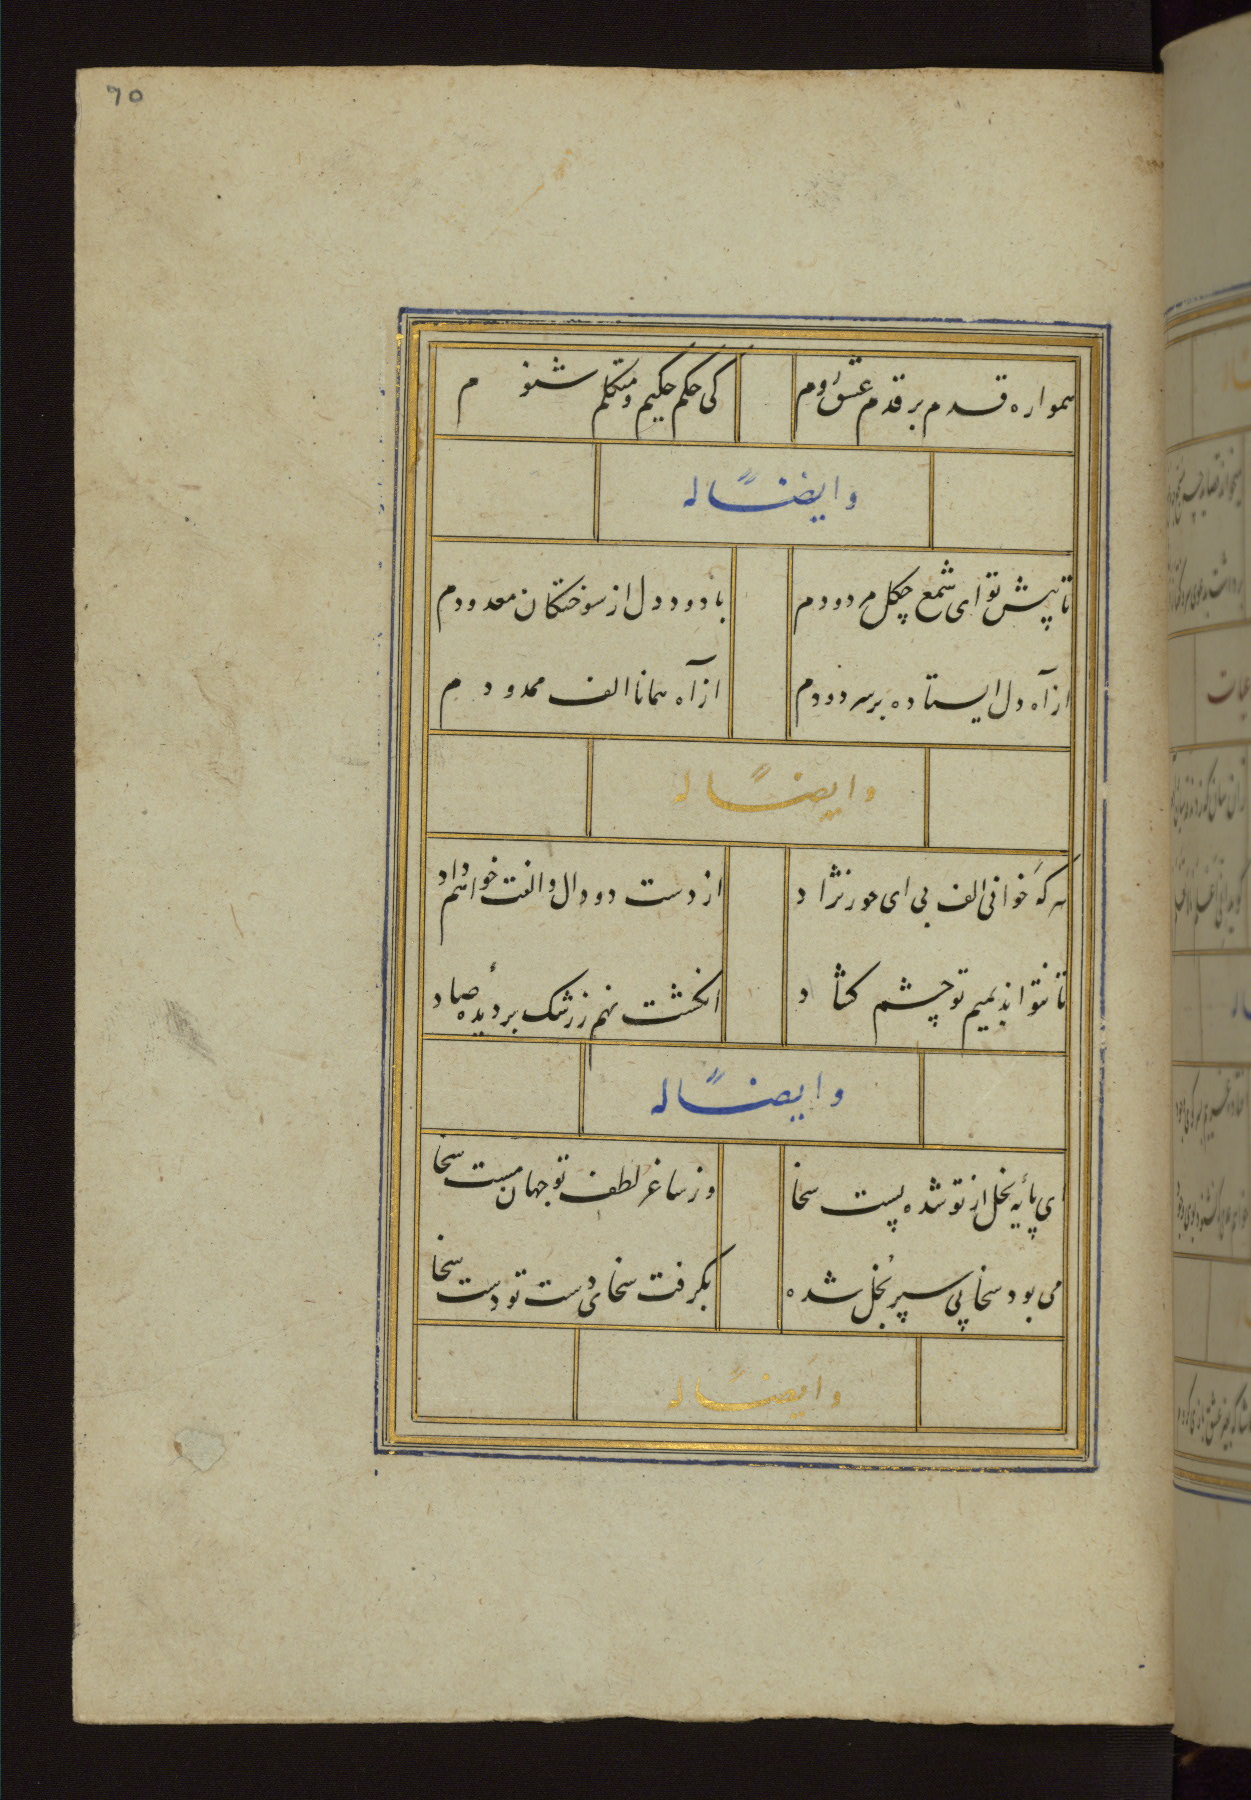 70
همواره قدم بر قدم عشق روم کی حکم حکیم و متکلم شنوم
وایضًا له
تا پیش تو ای شمع چکل مردودم با دود دل از سوختکان معدودم
از آه دل ایستاده بر سر دودم از آه همانا الف ممدودم
وایضًا له
هر که خوانی الف بی ای حور نژاد از دست دو دال و الفت خواهم داد
تا نتواند بمیم تو چشم کشاد انکشت نهم ز رشک بر دیدهٔ صاد
وایضًا له
ای پایهٔ بخل از تو شده پست سخا وز ساغر لطف تو جهان مست سخا
می بود سخا پی سپر بخل شده بکرفت سخای دست تو دست سخا
وایضًا له